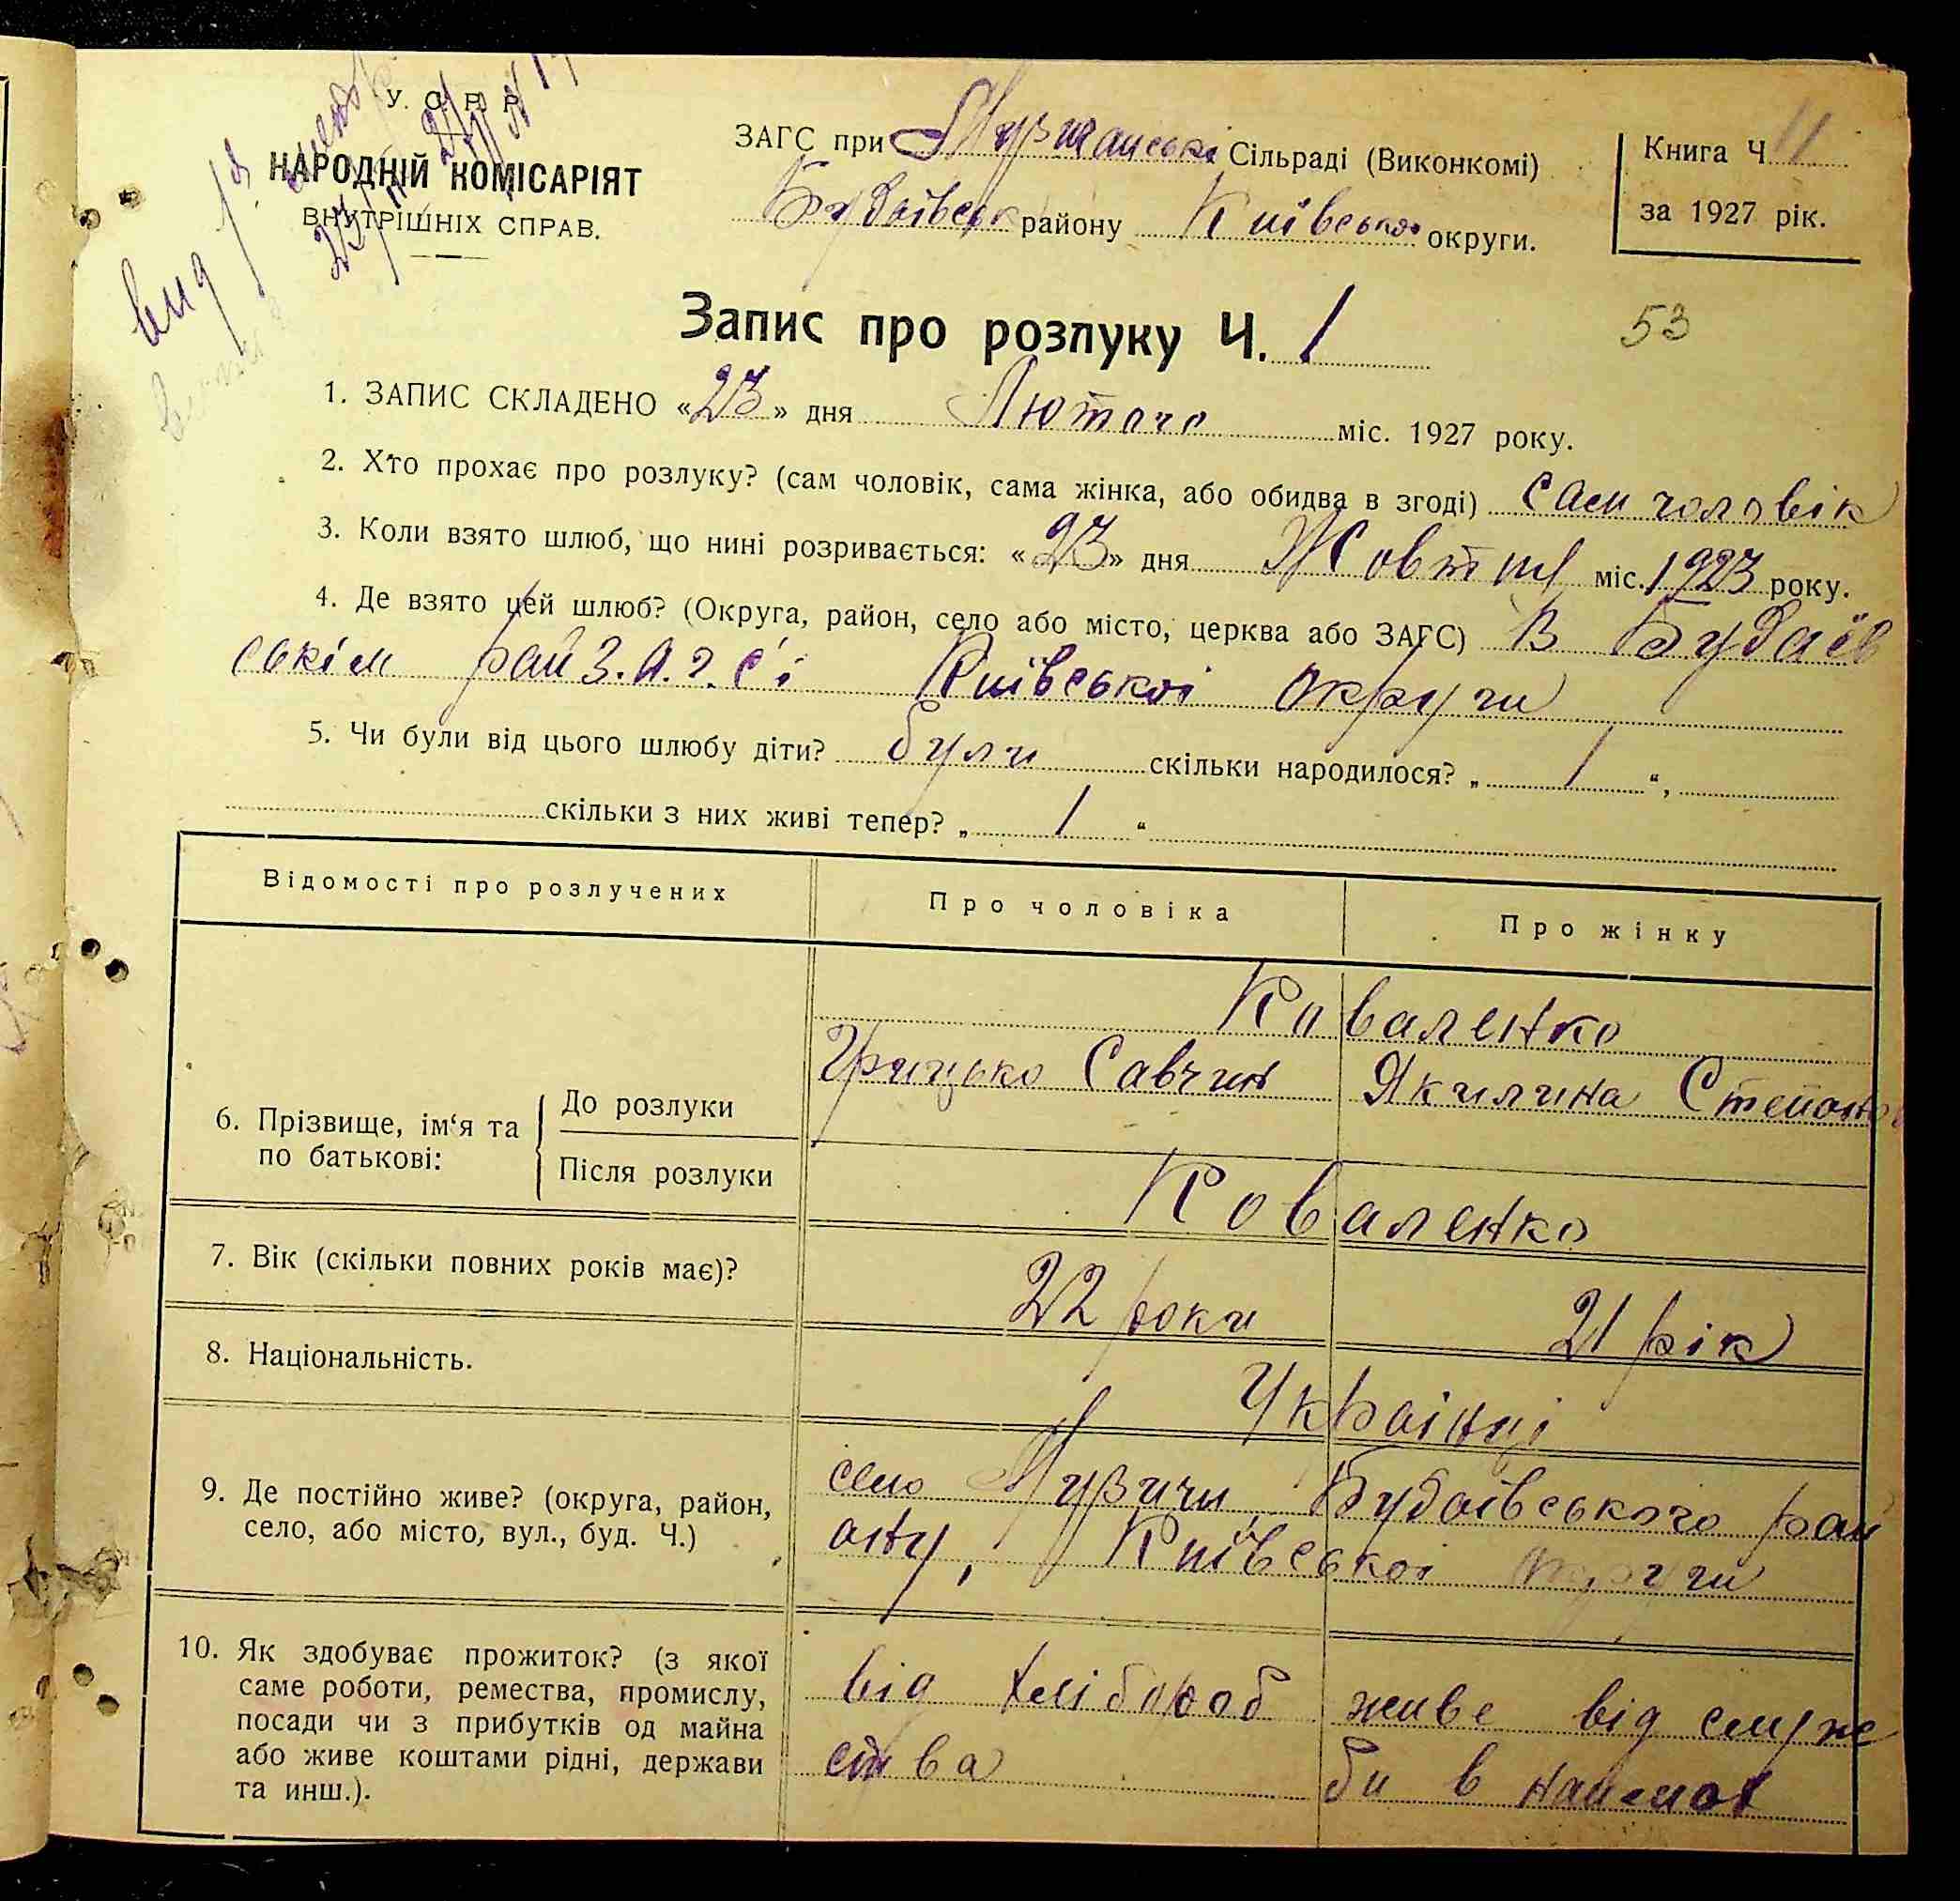 У. С. Р. Р.
НАРОДНІЙ КОМІСАРІЯТ
ВНУТРІШНІХ СПРАВ.
ЗАГС при Музичанські Сільраді (Виконкомі)
Будаівськ району Київської округи.
Книга Ч. 11
за 1927 рік.
вид
53
Запис про розлуку Ч. 1
1. ЗАПИС СКЛАДЕНО «23» дня Лютого міс. 1927 року.
2. Хто прохає про розлуку? (сам чоловік, сама жінка, або обидва в згоді) сам чоловік
3. Коли взято шлюб, що нині розривається: «23» дня Жовтня міс. 1923 року.
4. Де взято цей шлюб? (Округа, район, село або місто, церква або ЗАГС) В Будаїв
ськім рай З.А.Г.С'і Київської округи
5. Чи були від цього шлюбу діти? були скільки народилося? „ 1 “,
скільки з них живі тепер? „ 1 “
Відомості про розлучених
Про чоловіка
Про жінку
6. Прізвище, ім‘я та
по батькові:
До розлуки
Коваленко
Грицько Савчин
Якилина Степанов
Після розлуки
Коваленко
7. Вік (скільки повних років має)?
22 роки
21 рік
8. Національність.
Украінці
9. Де постійно живе? (округа, район,
село, або місто, вул., буд. Ч.)
село Музичи, Будаівського рай
ону, Київської округи
10. Як здобуває прожиток? (з якої
саме роботи, ремества, промислу,
посади чи з прибутків од майна
або живе коштами рідні, держави
та инш.).
від хлібороб
ства
живе від служ
би в наймах